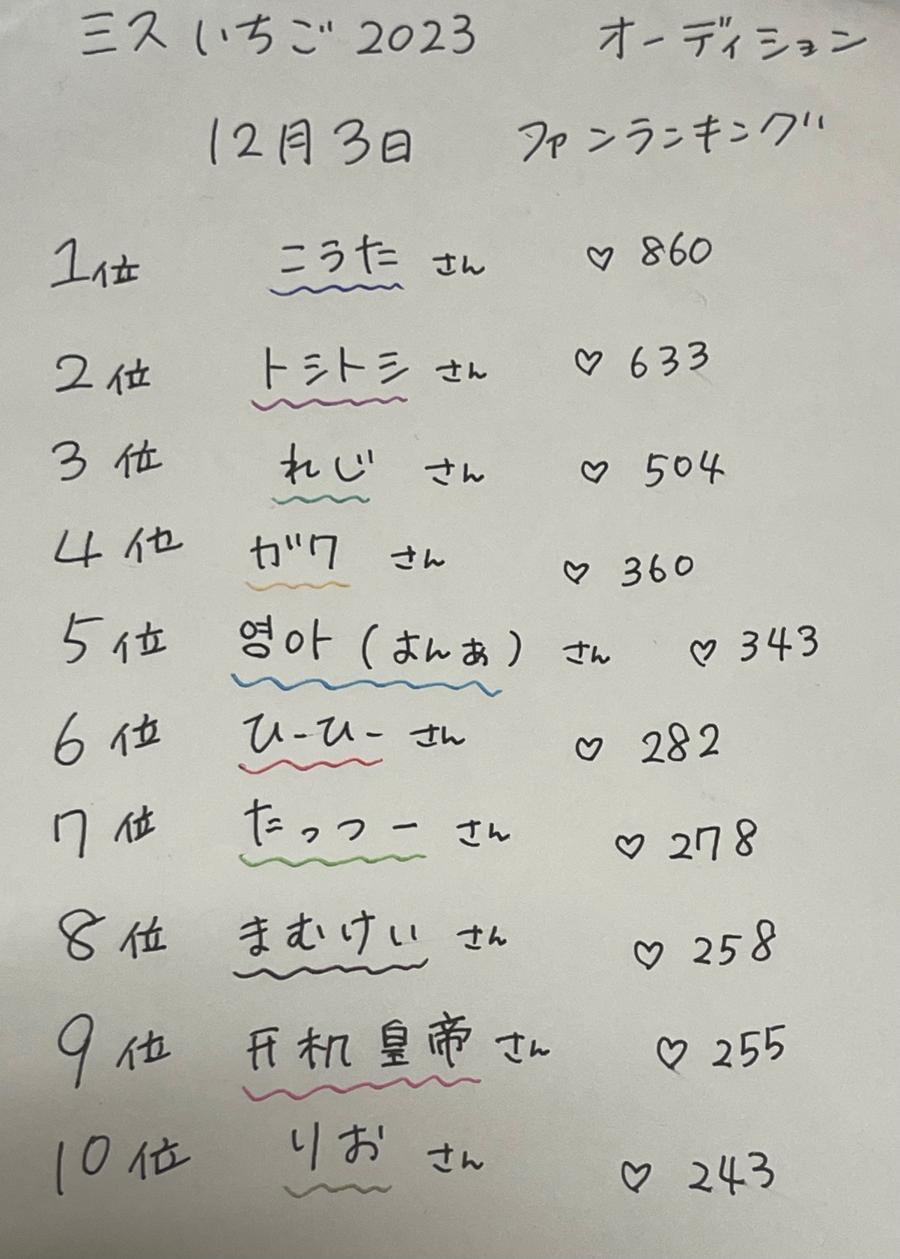 ミスいちご2023 オーディション
12月3日 ファンランキング
1位 こうた さん ♡ 860
2位 トシトシ さん ♡ 633
3位 れじ さん ♡ 504
4位 ガク さん ♡ 360
5位 영아 (よんぁ) さん ♡ 343
6位 ひーひー さん ♡ 282
7位 たっつー さん ♡ 278
8位 まむけい さん ♡ 258
9位 开机皇帝 さん ♡ 255
10位 りお さん ♡ 243